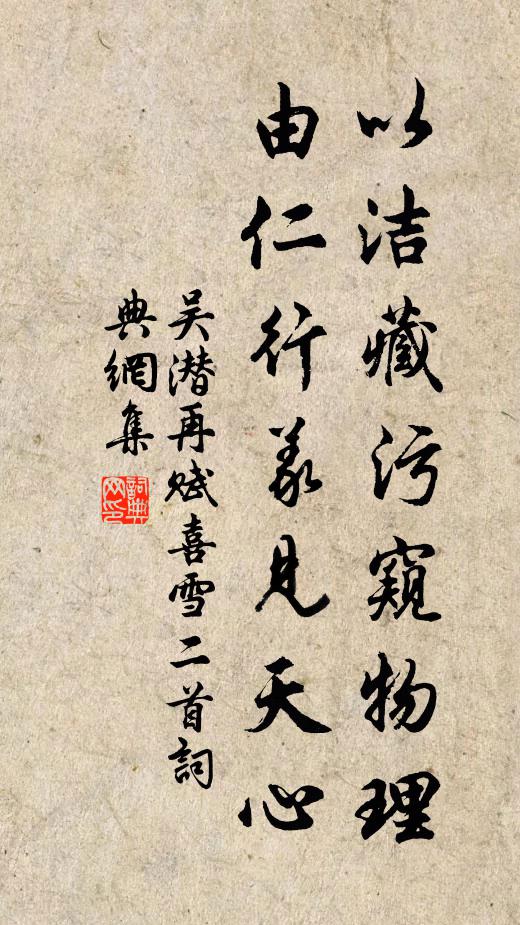 以洁藏污窥物理
由仁行义见天心
吴潜再赋喜雪二首詞
典網集
詞典
网印